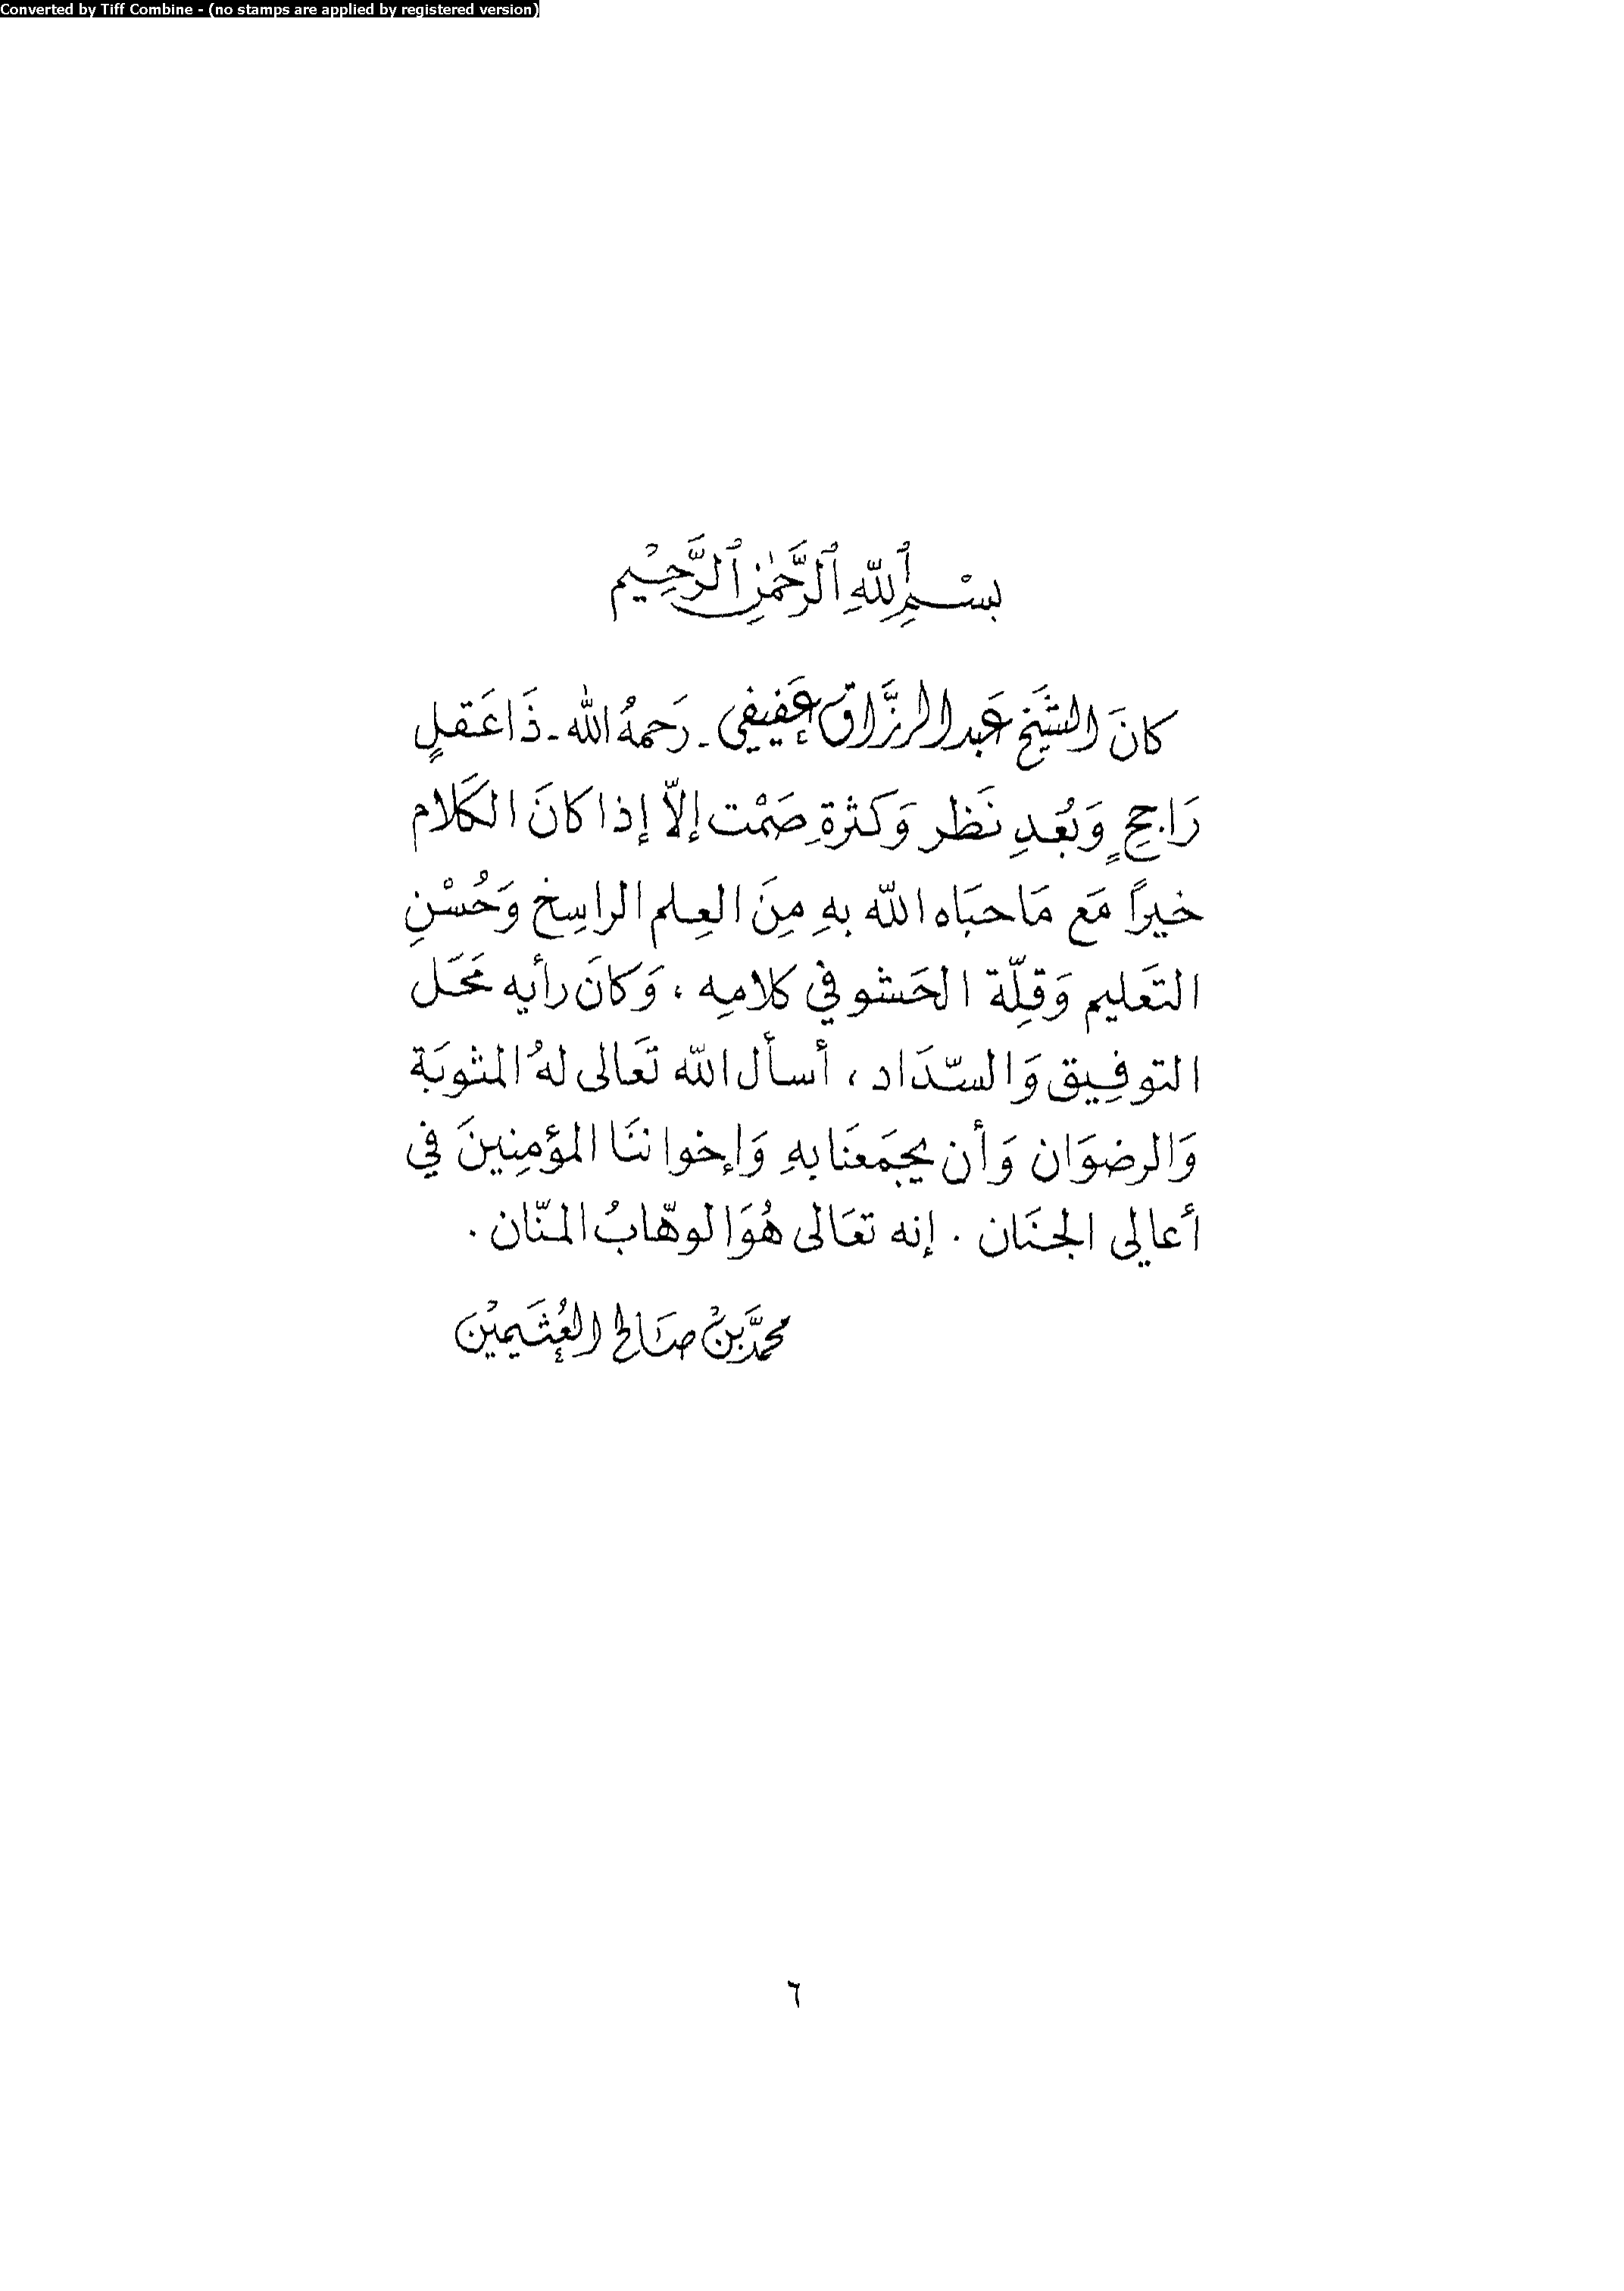 Converted by Tiff Combine - (no stamps are applied by registered version)
بِسْمِ ٱللَّهِ ٱلرَّحْمَٰنِ ٱلرَّحِيْمِ
كانَ الشَيْخ عَبد الرزَّاق عَفيفي - رَحمهُ الله - ذَا عَقلٍ
رَاجحٍ وَبُعدِ نَظر وَكثرةِ صَمْت إلاّ إذا كانَ الكَلام
خيراً مَع مَا حبَاه الله بهِ مِنَ العِلم الراسِخ وَحُسْنِ
التَعليم وَقِلّة الحَشو في كلامِه ، وَكانَ رأيه محَل
التوفِيق وَالسّدَاد ، أسأل الله تَعالى لهُ المثوبَة
وَالرضوَان وَأن يجمَعنَا بهِ وَإخواننَا المؤمِنينَ في
أعالي الجنَان . إنه تعَالى هُوَ الوهّابُ المنّان .
محمَّد بْن صَالح العُثَيمِيْن
٦